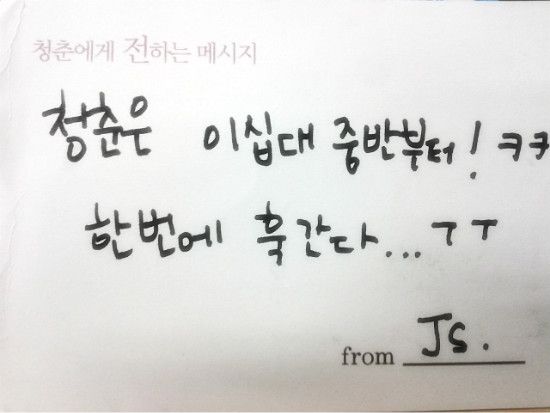 청춘에게 전하는 메시지
청춘은 이십대 중반부터! ㅋㅋ
한번에 훅간다...ㅜㅜ
from JS.